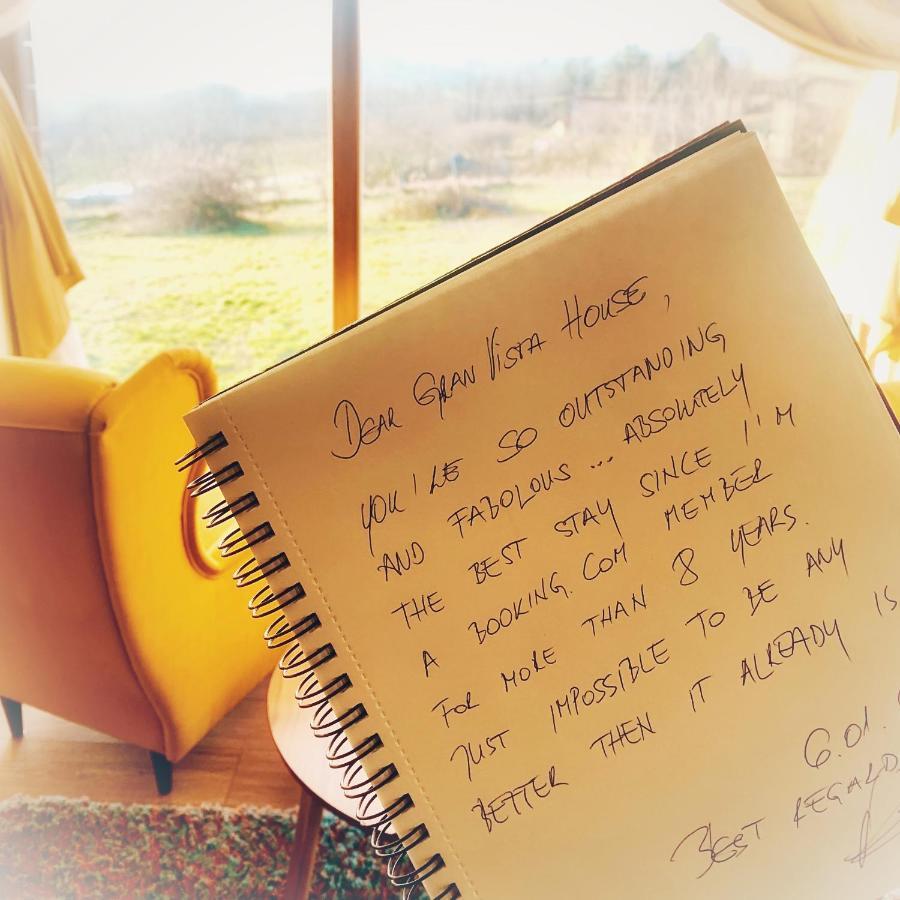 DEAR GRAN VISTA HOUSE,
YOU'RE SO OUTSTANDING
AND FABOLOUS ... ABSOLUTELY
THE BEST STAY SINCE I'M
A BOOKING.COM MEMBER
FOR MORE THAN 8 YEARS.
JUST IMPOSSIBLE TO BE ANY
BETTER THEN IT ALREADY IS
6.01.
BEST REGARDS